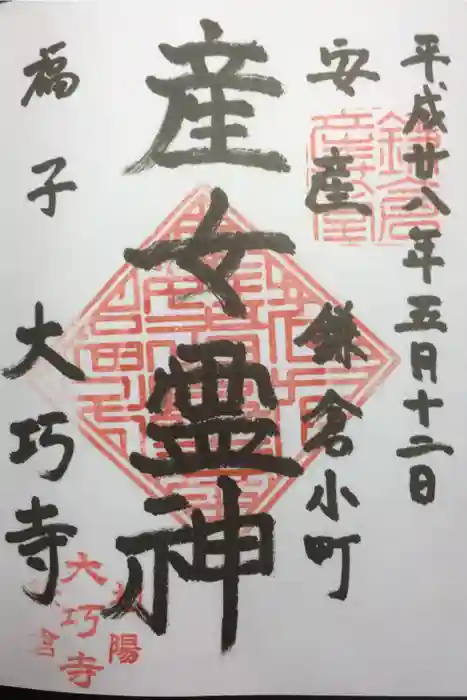 平成廿八年五月十二日
安産 鎌倉小町
産女霊神
福子 大巧寺
大巧寺